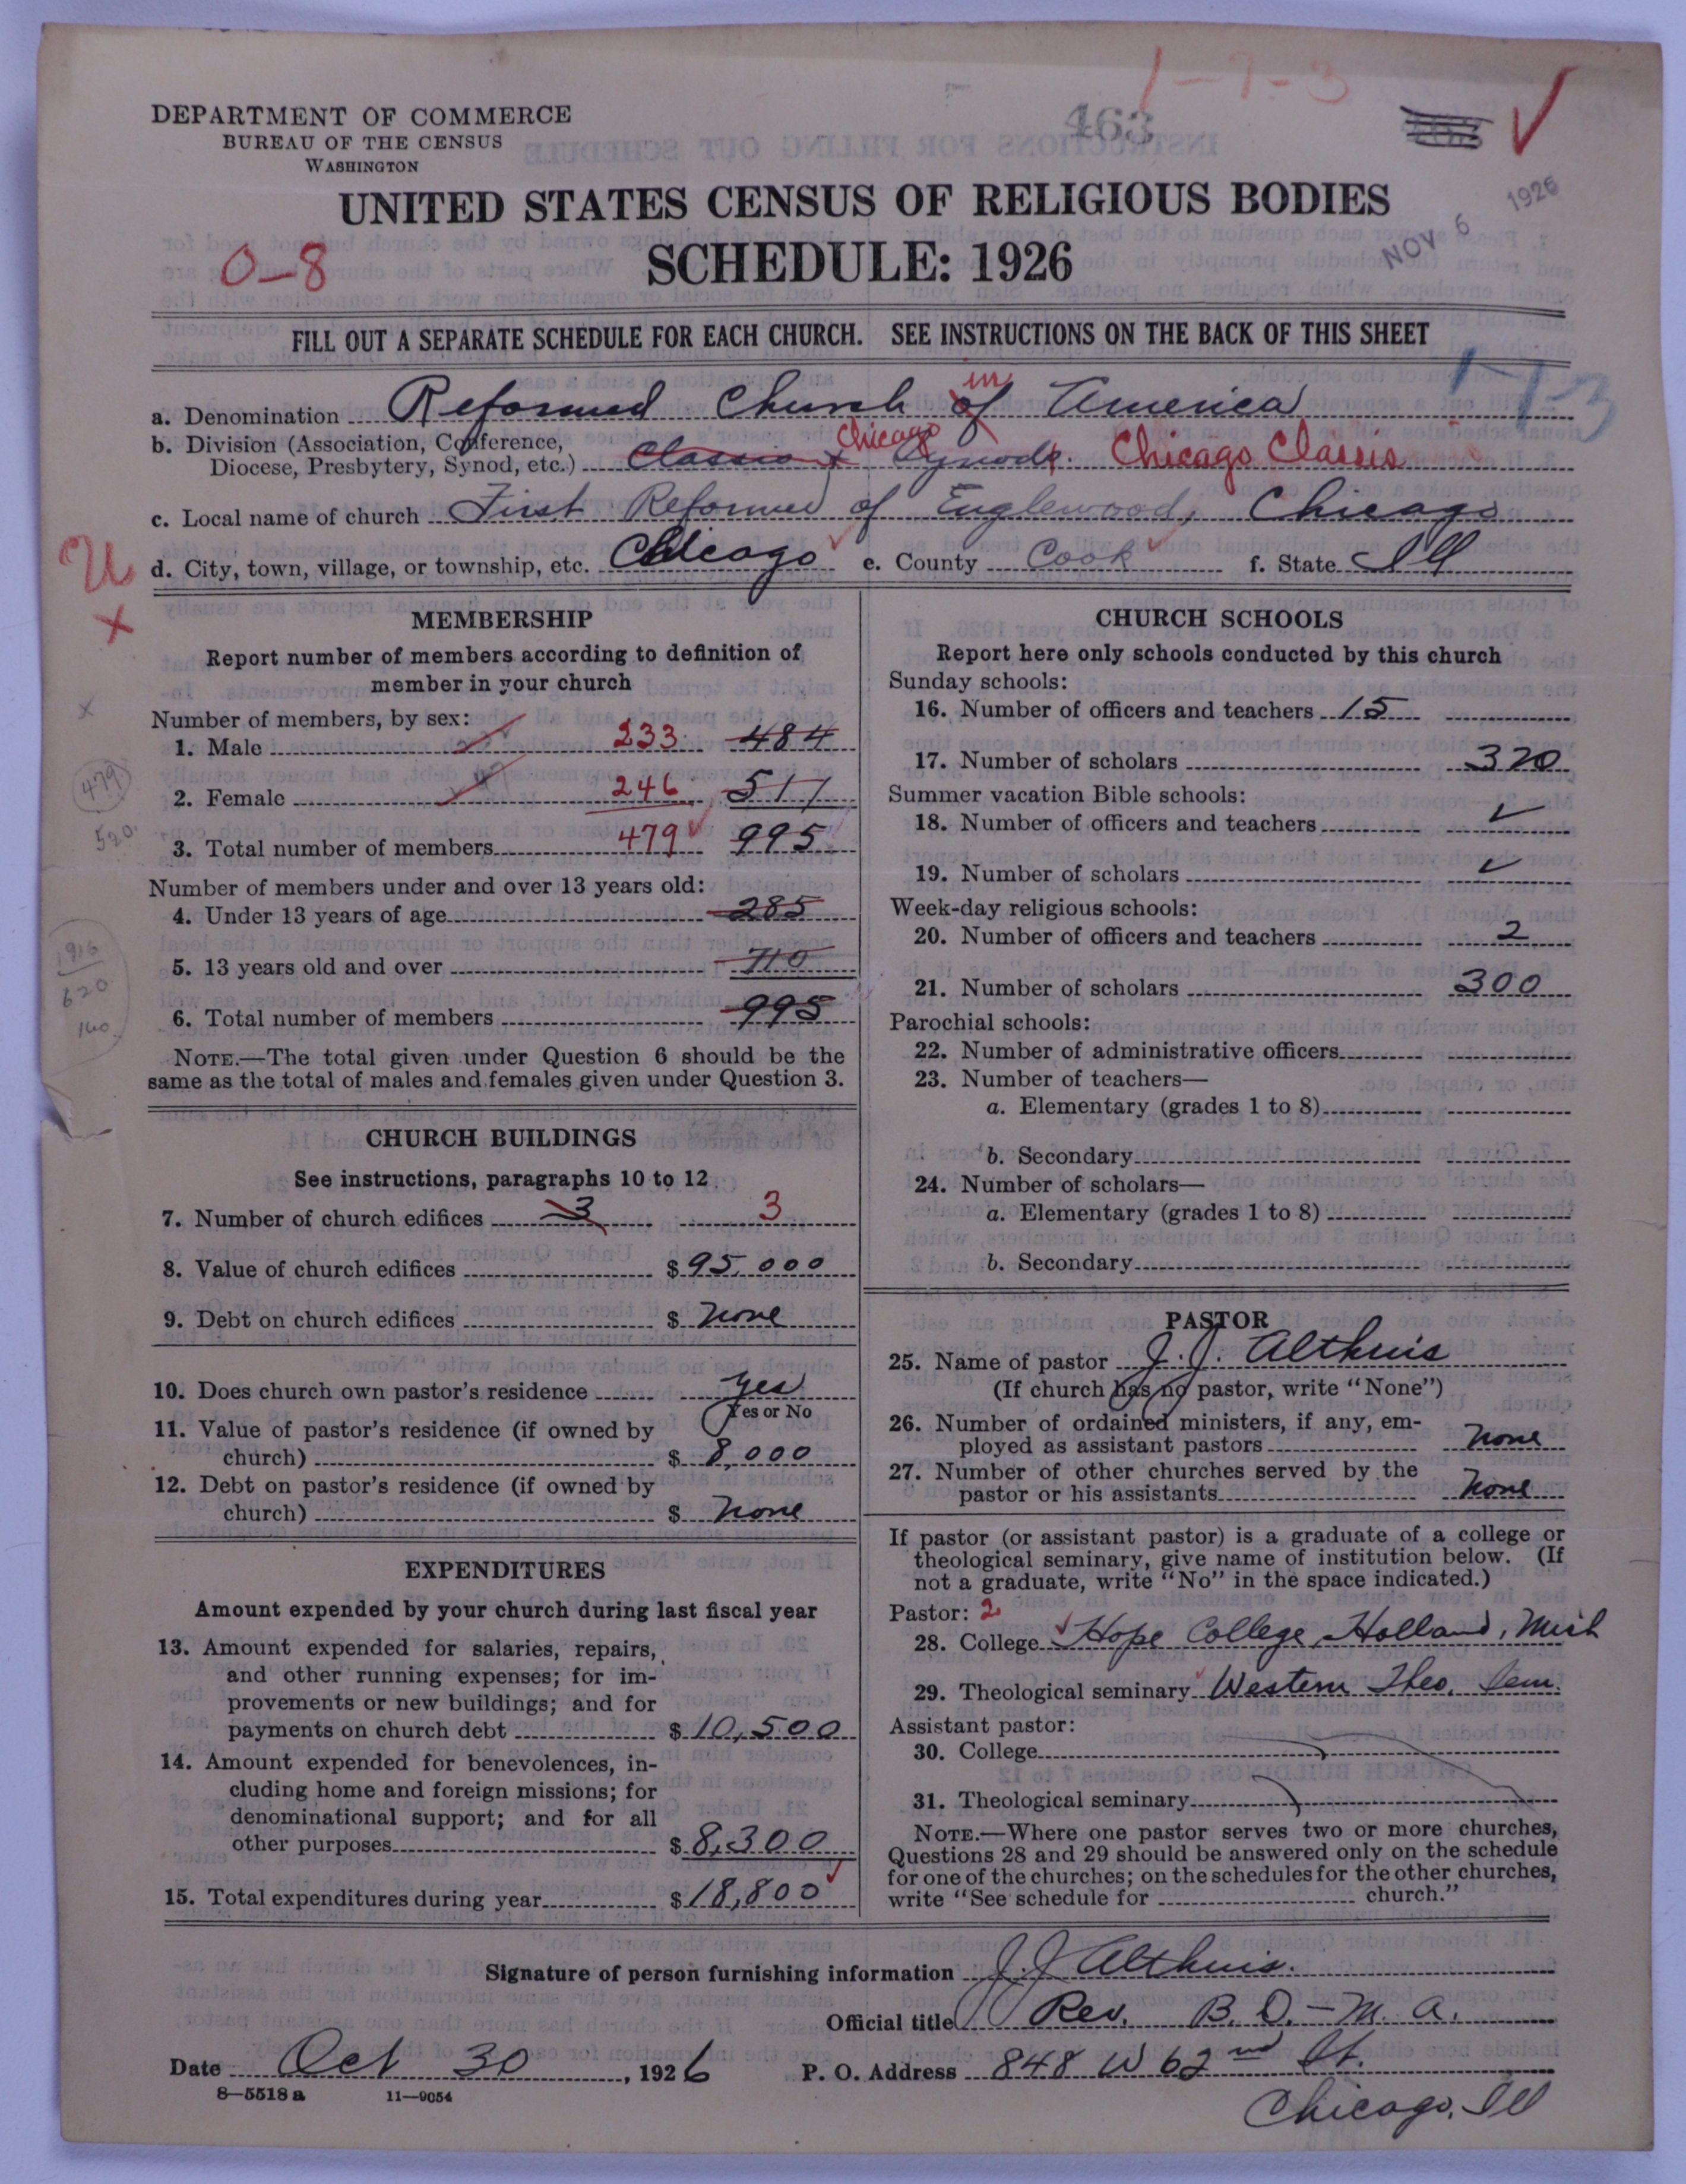 1-7-3
463
DEPARTMENT OF COMMERCE
BUREAU OF THE CENSUS
WASHINGTON
UNITED STATES CENSUS OF RELIGIOUS BODIES
NOV 6 1926
0-8 SCHEDULE: 1926
FILL OUT A SEPARATE SCHEDULE FOR EACH CHURCH. SEE INSTRUCTIONS ON THE BACK OF THIS SHEET
1-7-3
in
a. Denomination Reformed Church of America
b. Division (Association, Conference, Chicago
Diocese, Presbytery, Synod, etc.) Classis + Synods. Chicago Classis
c. Local name of church First Reformed of Englewood, Chicago
U d. City, town, village, or township, etc. Chicago e. County Cook f. State Ill
x
MEMBERSHIP
Report number of members according to definition of
member in your church
Number of members, by sex:
1. Male 233 484
479
2. Female 246 517
520
3. Total number of members 479 995
Number of members under and over 13 years old:
4. Under 13 years of age 285
5. 13 years old and over 710
916
620
140
6. Total number of members 995
NOTE.—The total given under Question 6 should be the
same as the total of males and females given under Question 3.
CHURCH BUILDINGS
See instructions, paragraphs 10 to 12
7. Number of church edifices 3 3
8. Value of church edifices $ 95,000
9. Debt on church edifices $ None
10. Does church own pastor's residence Yes
Yes or No
11. Value of pastor's residence (if owned by
church) $ 8,000
12. Debt on pastor's residence (if owned by
church) $ None
EXPENDITURES
Amount expended by your church during last fiscal year
13. Amount expended for salaries, repairs,
and other running expenses; for im-
provements or new buildings; and for
payments on church debt $ 10,500
14. Amount expended for benevolences, in-
cluding home and foreign missions; for
denominational support; and for all
other purposes $ 8,300
15. Total expenditures during year $ 18,800
CHURCH SCHOOLS
Report here only schools conducted by this church
Sunday schools:
16. Number of officers and teachers 15
17. Number of scholars 320
Summer vacation Bible schools:
18. Number of officers and teachers
19. Number of scholars
Week-day religious schools:
20. Number of officers and teachers 2
21. Number of scholars 300
Parochial schools:
22. Number of administrative officers
23. Number of teachers—
a. Elementary (grades 1 to 8)
b. Secondary
24. Number of scholars—
a. Elementary (grades 1 to 8)
b. Secondary
PASTOR
25. Name of pastor J. J. Althuis
(If church has no pastor, write "None")
26. Number of ordained ministers, if any, em-
ployed as assistant pastors None
27. Number of other churches served by the
pastor or his assistants None
If pastor (or assistant pastor) is a graduate of a college or
theological seminary, give name of institution below. (If
not a graduate, write "No" in the space indicated.)
Pastor: 2
28. College Hope College, Holland, Mich
29. Theological seminary Western Theo. Sem.
Assistant pastor:
30. College
31. Theological seminary
NOTE.—Where one pastor serves two or more churches,
Questions 28 and 29 should be answered only on the schedule
for one of the churches; on the schedules for the other churches,
write "See schedule for church."
Signature of person furnishing information J. J. Althuis.
Official title Rev. B. D. - M. A.
Date Oct 30, 1926 P. O. Address 848 W 62nd St.
8—5518 a 11—9054 Chicago, Ill